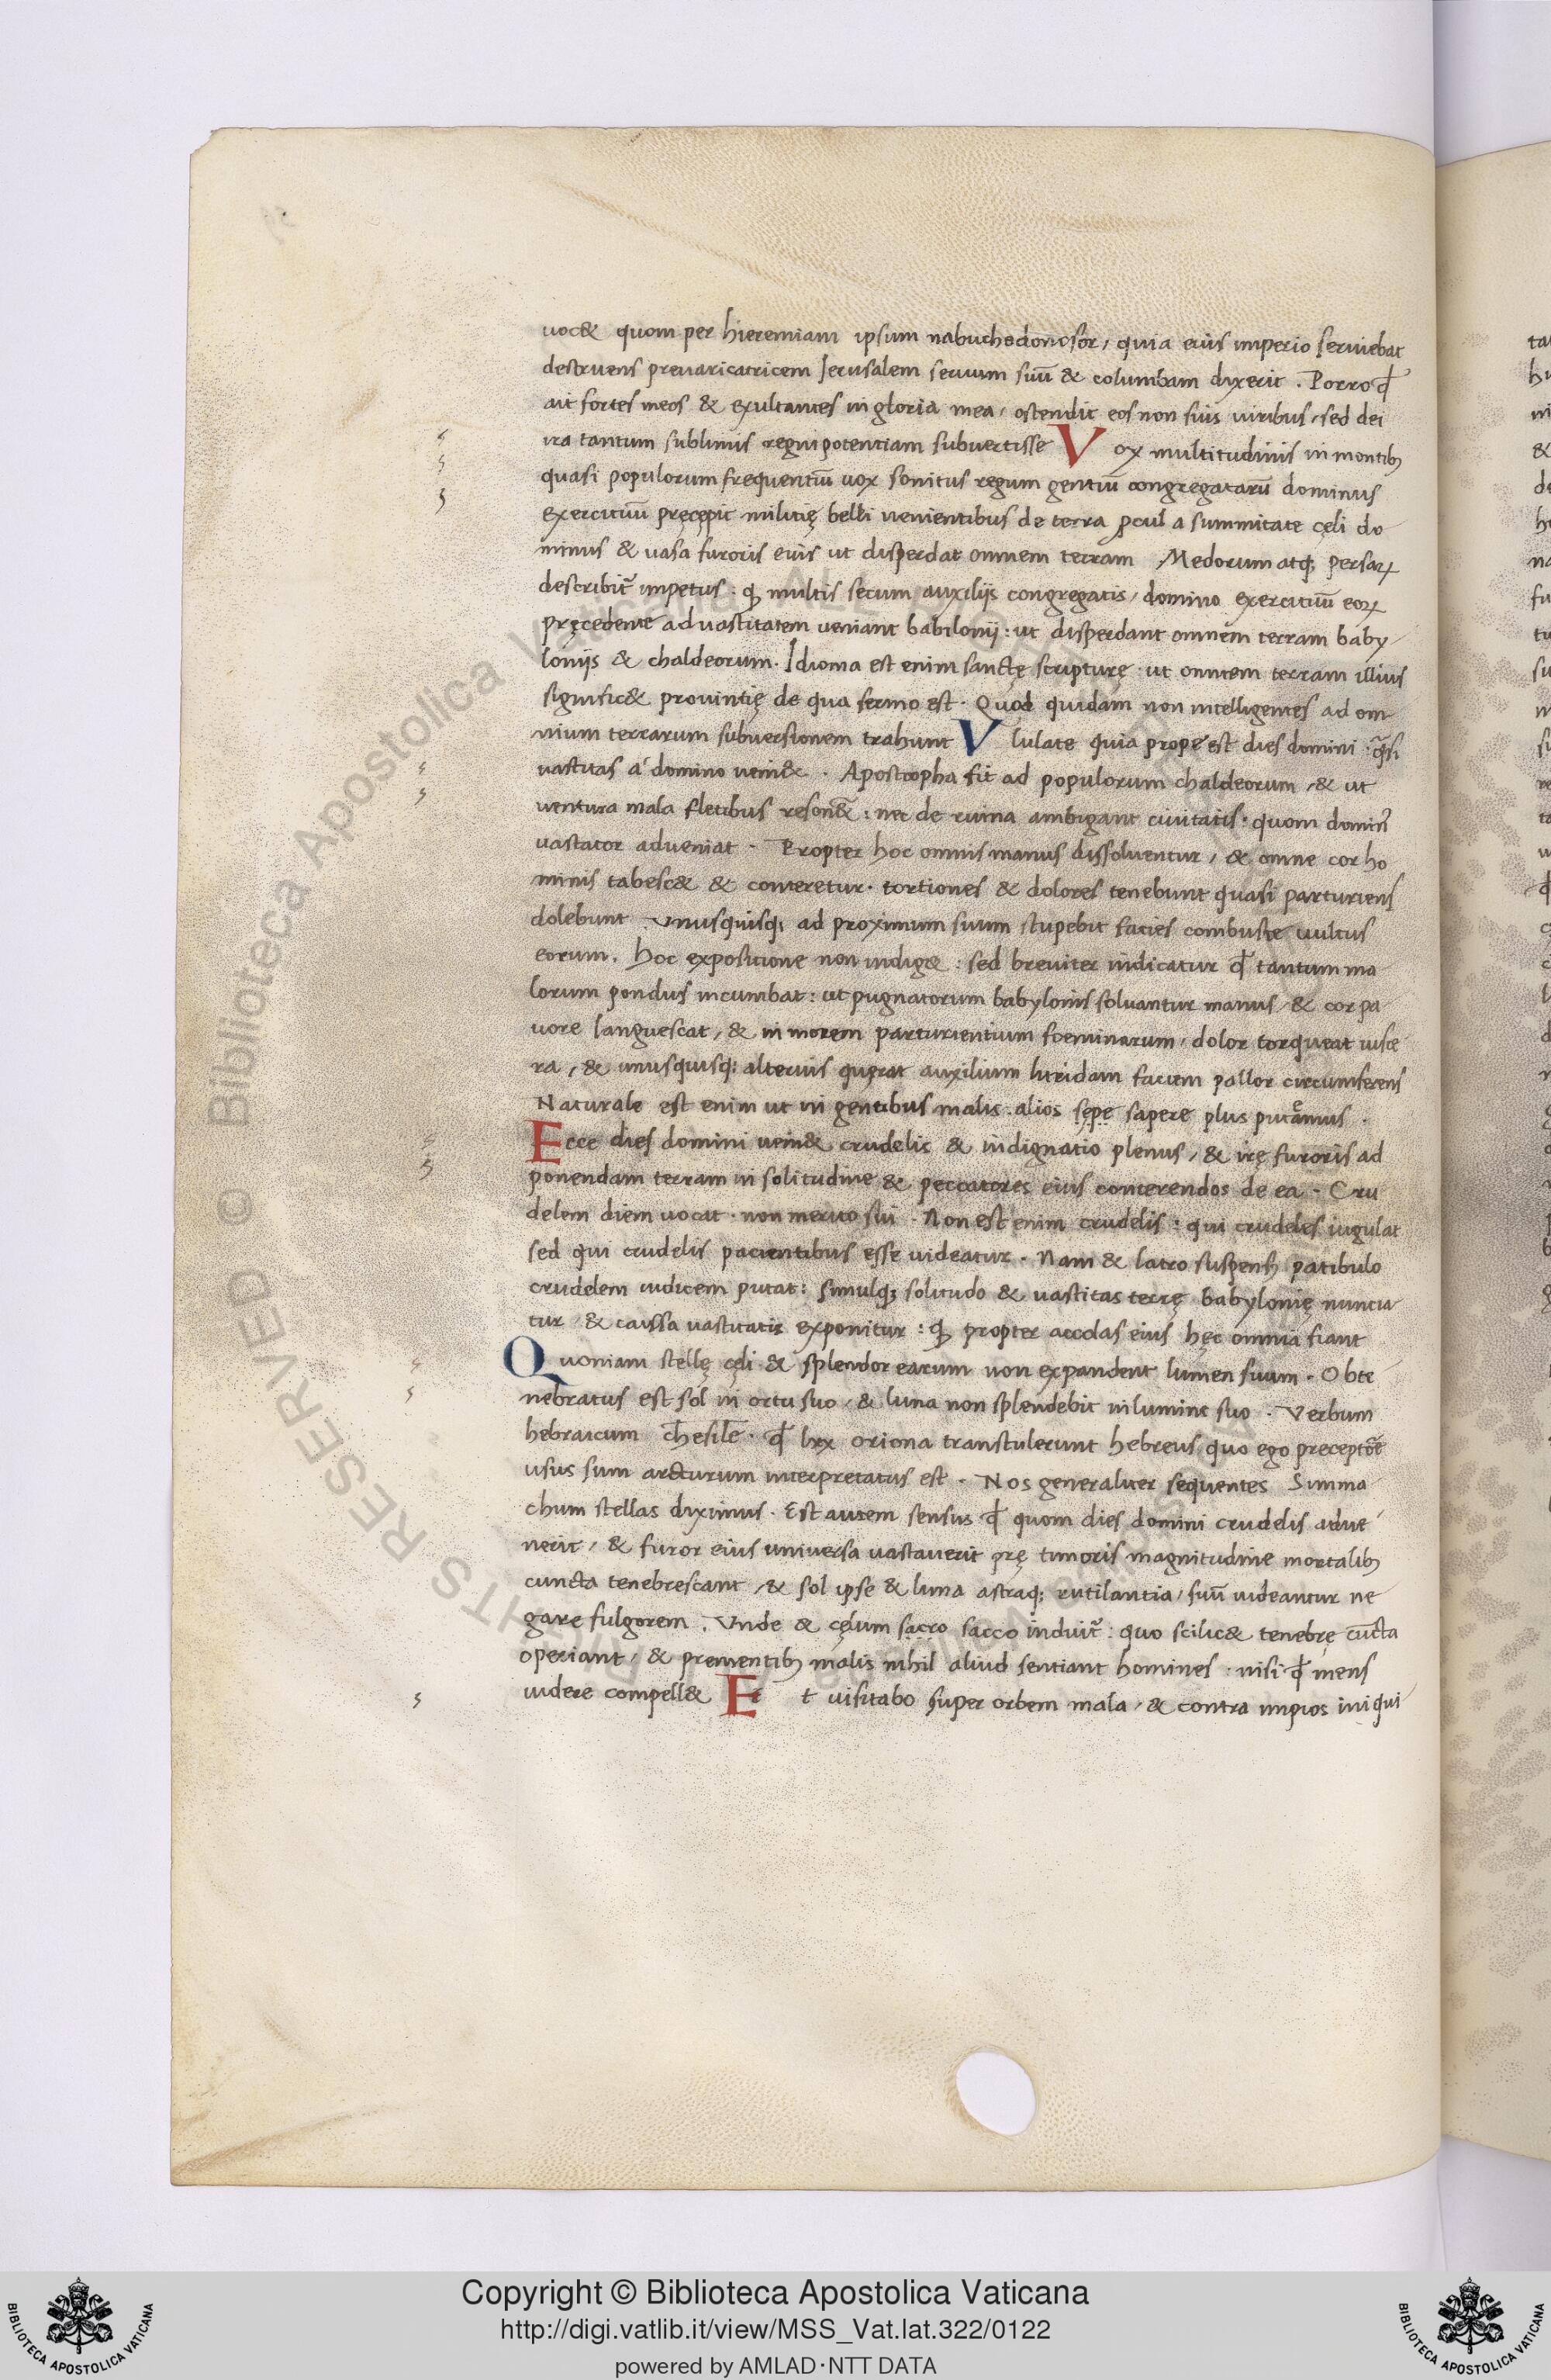 uoc& quom per hieremiam ipsum nabuchodonosor, quia eius imperio seruiebat
destruens preuaricatricem Jerusalem seruum suū & columbam dixerit . Porro qđ
ait fortes meos & exultantes in gloria mea, ostendit eos non suis uiribus, sed dei
ira tantum sublimis regni potentiam subuertisse Vox multitudinis in montibꝫ
quasi populorum frequentiū uox sonitus regum gentiū congregatarū dominus
exercituū precępit militię belli uenientibus de terra ꝓcul a summitate cęli do
minus & uasa furoris eius ut disperdat omnem terram Medorum atqꝫ persaꝝ
describit̃ impetus . qꝫ multis secum auxilijs congregatis, domino exercituū eoꝝ
pręcedente ad uastitatem ueniant babilonij : ut disperdant omnem terram baby
lonijs & chaldeorum . Idioma est enim sanctę scripturę . ut omnem terram illius
signific& prouintię de qua sermo est . Quod quidam non intelligentes ad om
nium terrarum subuersionem trahunt Vlulate quia prope est dies domini : q̃si
uastitas a domino ueni& . Apostropha fit ad populorum chaldeorum , & ut
uentura mala fletibus reson& : nec de ruina ambigant ciuitatis . quom domin9
uastator adueniat . Propter hoc omnis manus dissoluentur, & omne cor ho
minis tabesc& & conteretur . tortiones & dolores tenebunt quasi parturiens
dolebunt . Vnusquisqꝫ ad proximum suum stupebit facies combuste uultus
eorum . hoc expositione non indig& : sed breuiter indicatur qđ tantum ma
lorum pondus incumbat : ut pugnatorum babylonis soluantur manus, & cor pa
uore languescat, & in morem parturientium foeminarum, dolor torqueat uisce
ra, & unusquisqꝫ alterius quęrat auxilium luridam faciem pallor circumferens
Naturale est enim ut in gentibus malis . alios sępe sapere plus putamus .
Ecce dies domini ueni& crudelis & indignatio plenus, & irę furoris ad
ponendam terram in solitudine & peccatores eius conterendos de ea . Cru
delem diem uocat . non merito sui . Non est enim crudelis : qui crudeles iugulat
sed qui crudelis pacientibus esse uideatur . Nam & latro suspens9 patibulo
crudelem iudicem putat : simulqꝫ solitudo & uastitas terrę babylonię nuncia
tur & caussa uastitatis exponitur : qꝫ propter accolas eius hęc omnia fiant
Quoniam stellę cęli & splendor earum non expandent lumen suum . Obte
nebratus est sol in ortu suo, & luna non splendebit in lumine suo . Verbum
hebraicum chesile . qđ lxx oriona transtulerunt hebreus quo ego preceptōe
usus sum arcturum interpretatus est . Nos generaliter sequentes Simma
chum stellas diximus . Est autem sensus qđ quom dies domini crudelis adue
nerit, & furor eius universa uastauerit prę timoris magnitudine mortalibꝫ
cuncta tenebrescant, & sol ipse & luna astraqꝫ rutilantia, suū uideantur ne
gare fulgorem . Vnde & cęlum sacro sacco induit̃ : quo scilic& tenebrę cūcta
operiant, & prementibꝫ malis nihil aliud sentiant homines : nisi qđ mens
uidere compell& Et uisitabo super orbem mala, & contra impios iniqui
Copyright © Biblioteca Apostolica Vaticana
http://digi.vatlib.it/view/MSS_Vat.lat.322/0122
powered by AMLAD·NTT DATA